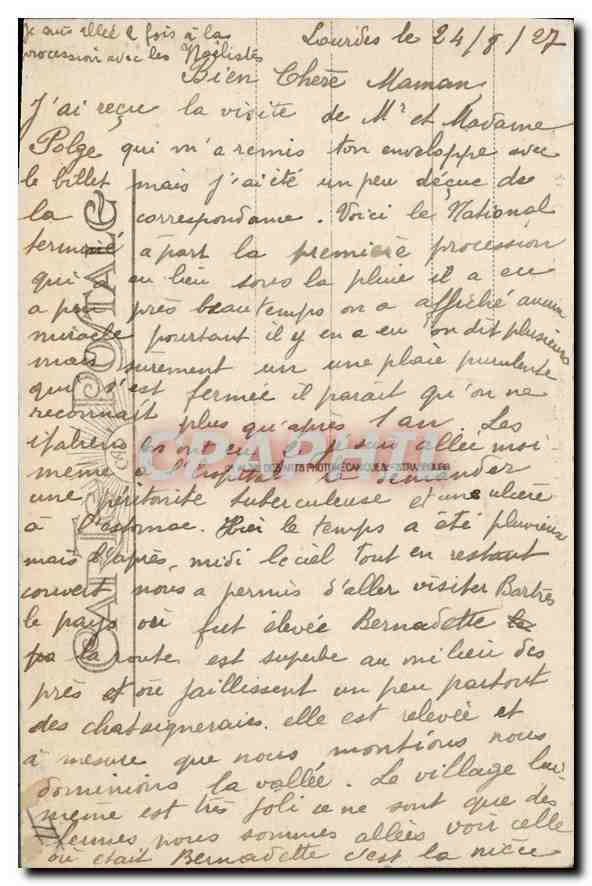 je suis allée 2 fois à la
procession avec les Noëlistes
Lourdes le 24/8/27
Bien Chère Maman
J'ai reçu la visite de Mr et Madame
Polge qui m'a remis ton enveloppe avec
le billet mais j'ai été un peu déçue de
la correspondance. Voici le National
terminé à part la première procession
qui a eu lieu sous la pluie il a eu
a peu près beau temps on a affiché aucun
miracle pourtant il y en a eu on dit plusieurs
mais surement un une plaie purulente
qui s'est fermée il parait qu'on ne
reconnait plus qu'après 1 an. Les
italiens en ont eu 2 je suis allée moi-
même à l'hopital le demander
une péritonite tuberculeuse et un ulcère
à l'estomac. Hier le temps a été pluvieux
mais l'après-midi le ciel tout en restant
couvert nous a permis d'aller visiter Bartrès
le pays où fut élevée Bernadette
la route est superbe au milieu des
près et où jaillissent un peu partout
des chataigneraies. elle est relevée et
à mesure que nous montions nous
dominions la vallée. Le village lui-
même est très joli ce ne sont que des
fermes nous sommes allées voir celle
où était Bernadette c'est la nièce
CARTE POSTALE
CPAPHIL